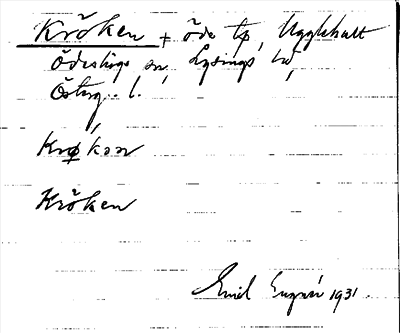 Kröken + öde tp, Ugglehult
Ödeshögs sn, Lysings hd,
Österg. l.
Krøkən
Kröken
Emil 1931.